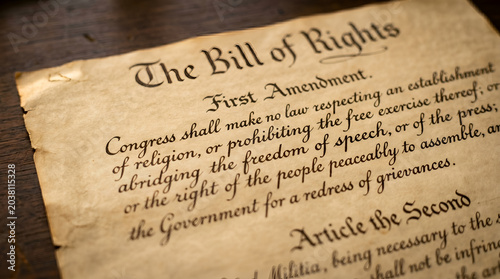 The Bill of Rights
First Amendment.
Congress shall make no law respecting an establishment
of religion, or prohibiting the free exercise thereof; or
abridging the freedom of speech, or of the press;
or the right of the people peaceably to assemble, an
the Government for a redress of grievances.
Article the Second
Militia, being necessary to the s
shall not be infrin
2038115328